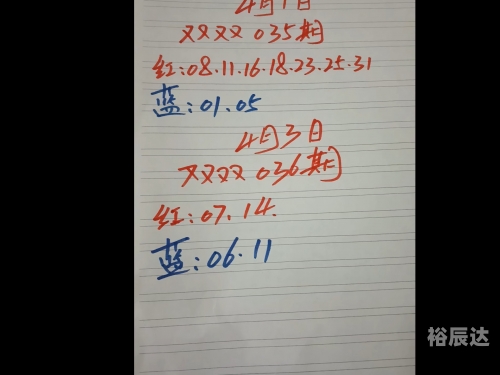 4月1日
双双 035期
红:08.11.16.18.23.25.31
蓝:01.05
4月3日
双双 036期
红:07.14.
蓝:06.11
裕辰达